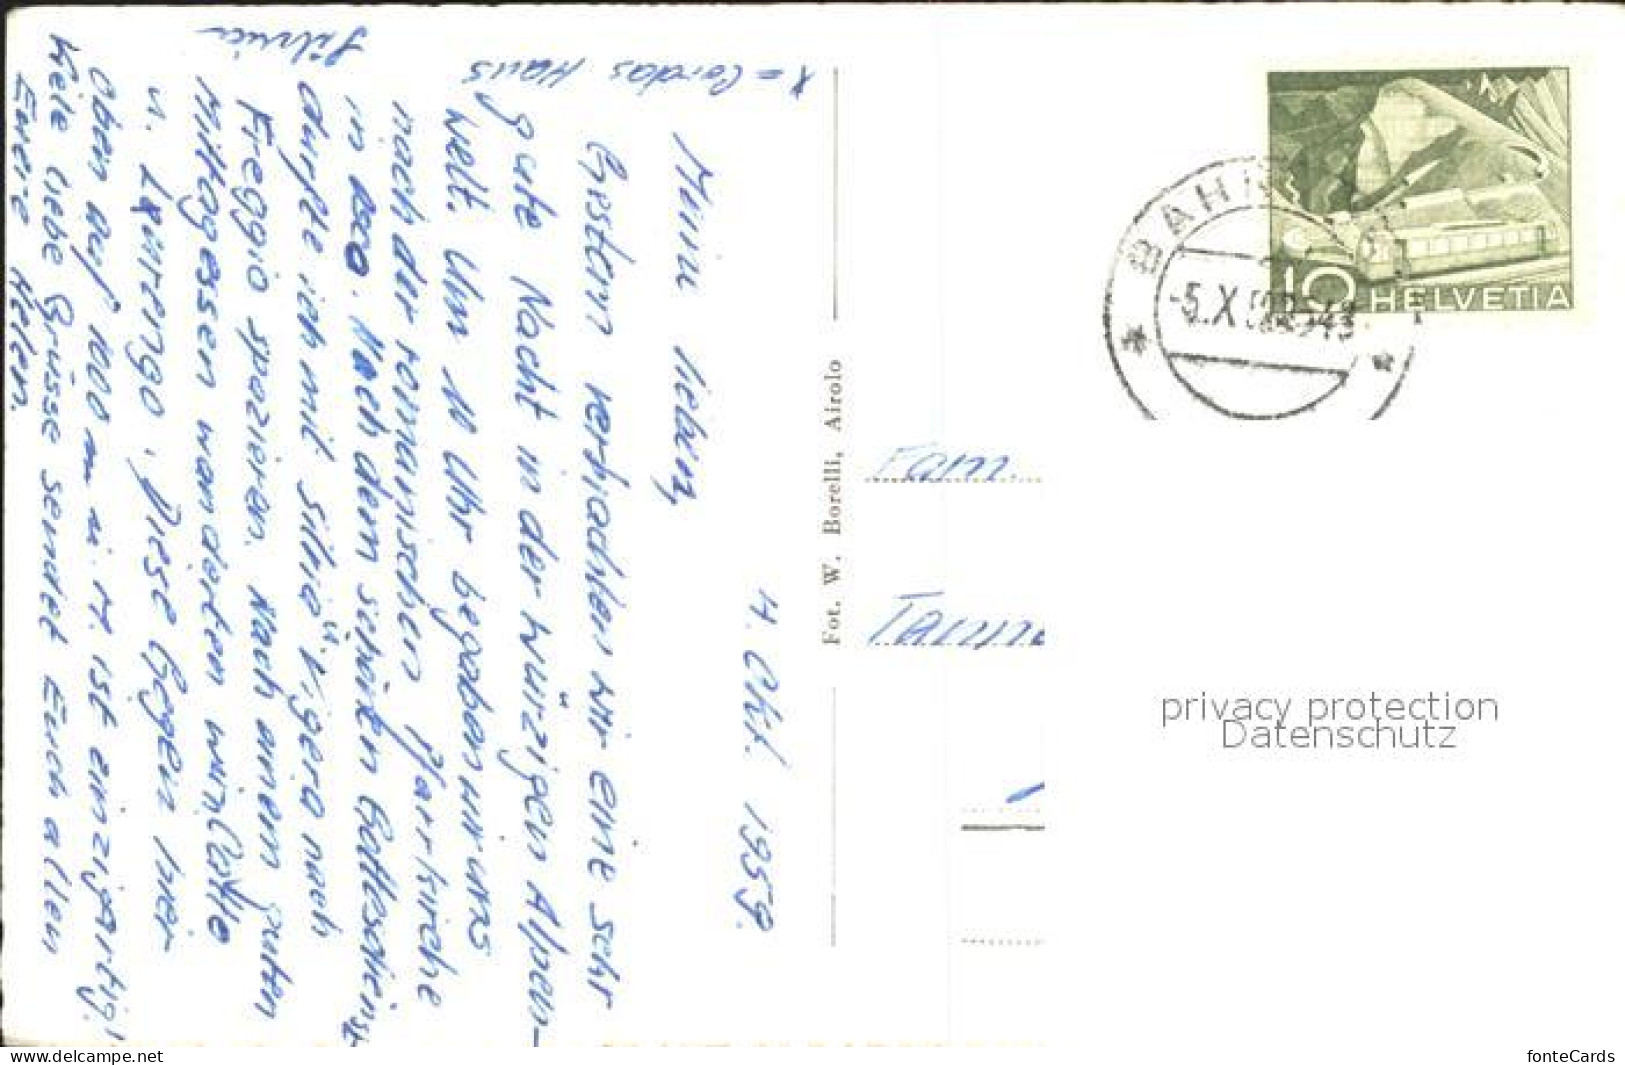 4. Okt. 1959.
Meine Lieben,
Gestern verbrachten wir eine sehr
gute Nacht in der würzigen Alpen-
welt. Um 11 Uhr begaben wir uns
nach der romanischen Pfarrkirche
in . Nach dem schönen Gottesdienst
durfte ich mit Silvio Vigera nach
Freggio spazieren. Nach einem guten
Mittagessen wanderten wir
u. . Diese Gegend hier
Oben auf 1000 m ü. M. ist einzigartig!
Viele liebe Grüsse sendet Euch allen
Euere Helen.
x = Cordas Haus
Silvia
Fot. W. Borelli, Airolo
Fam.
BAHN
-5.X.
10 HELVETIA
privacy protection
Datenschutz
https://www.delcampe.net
fonteCards